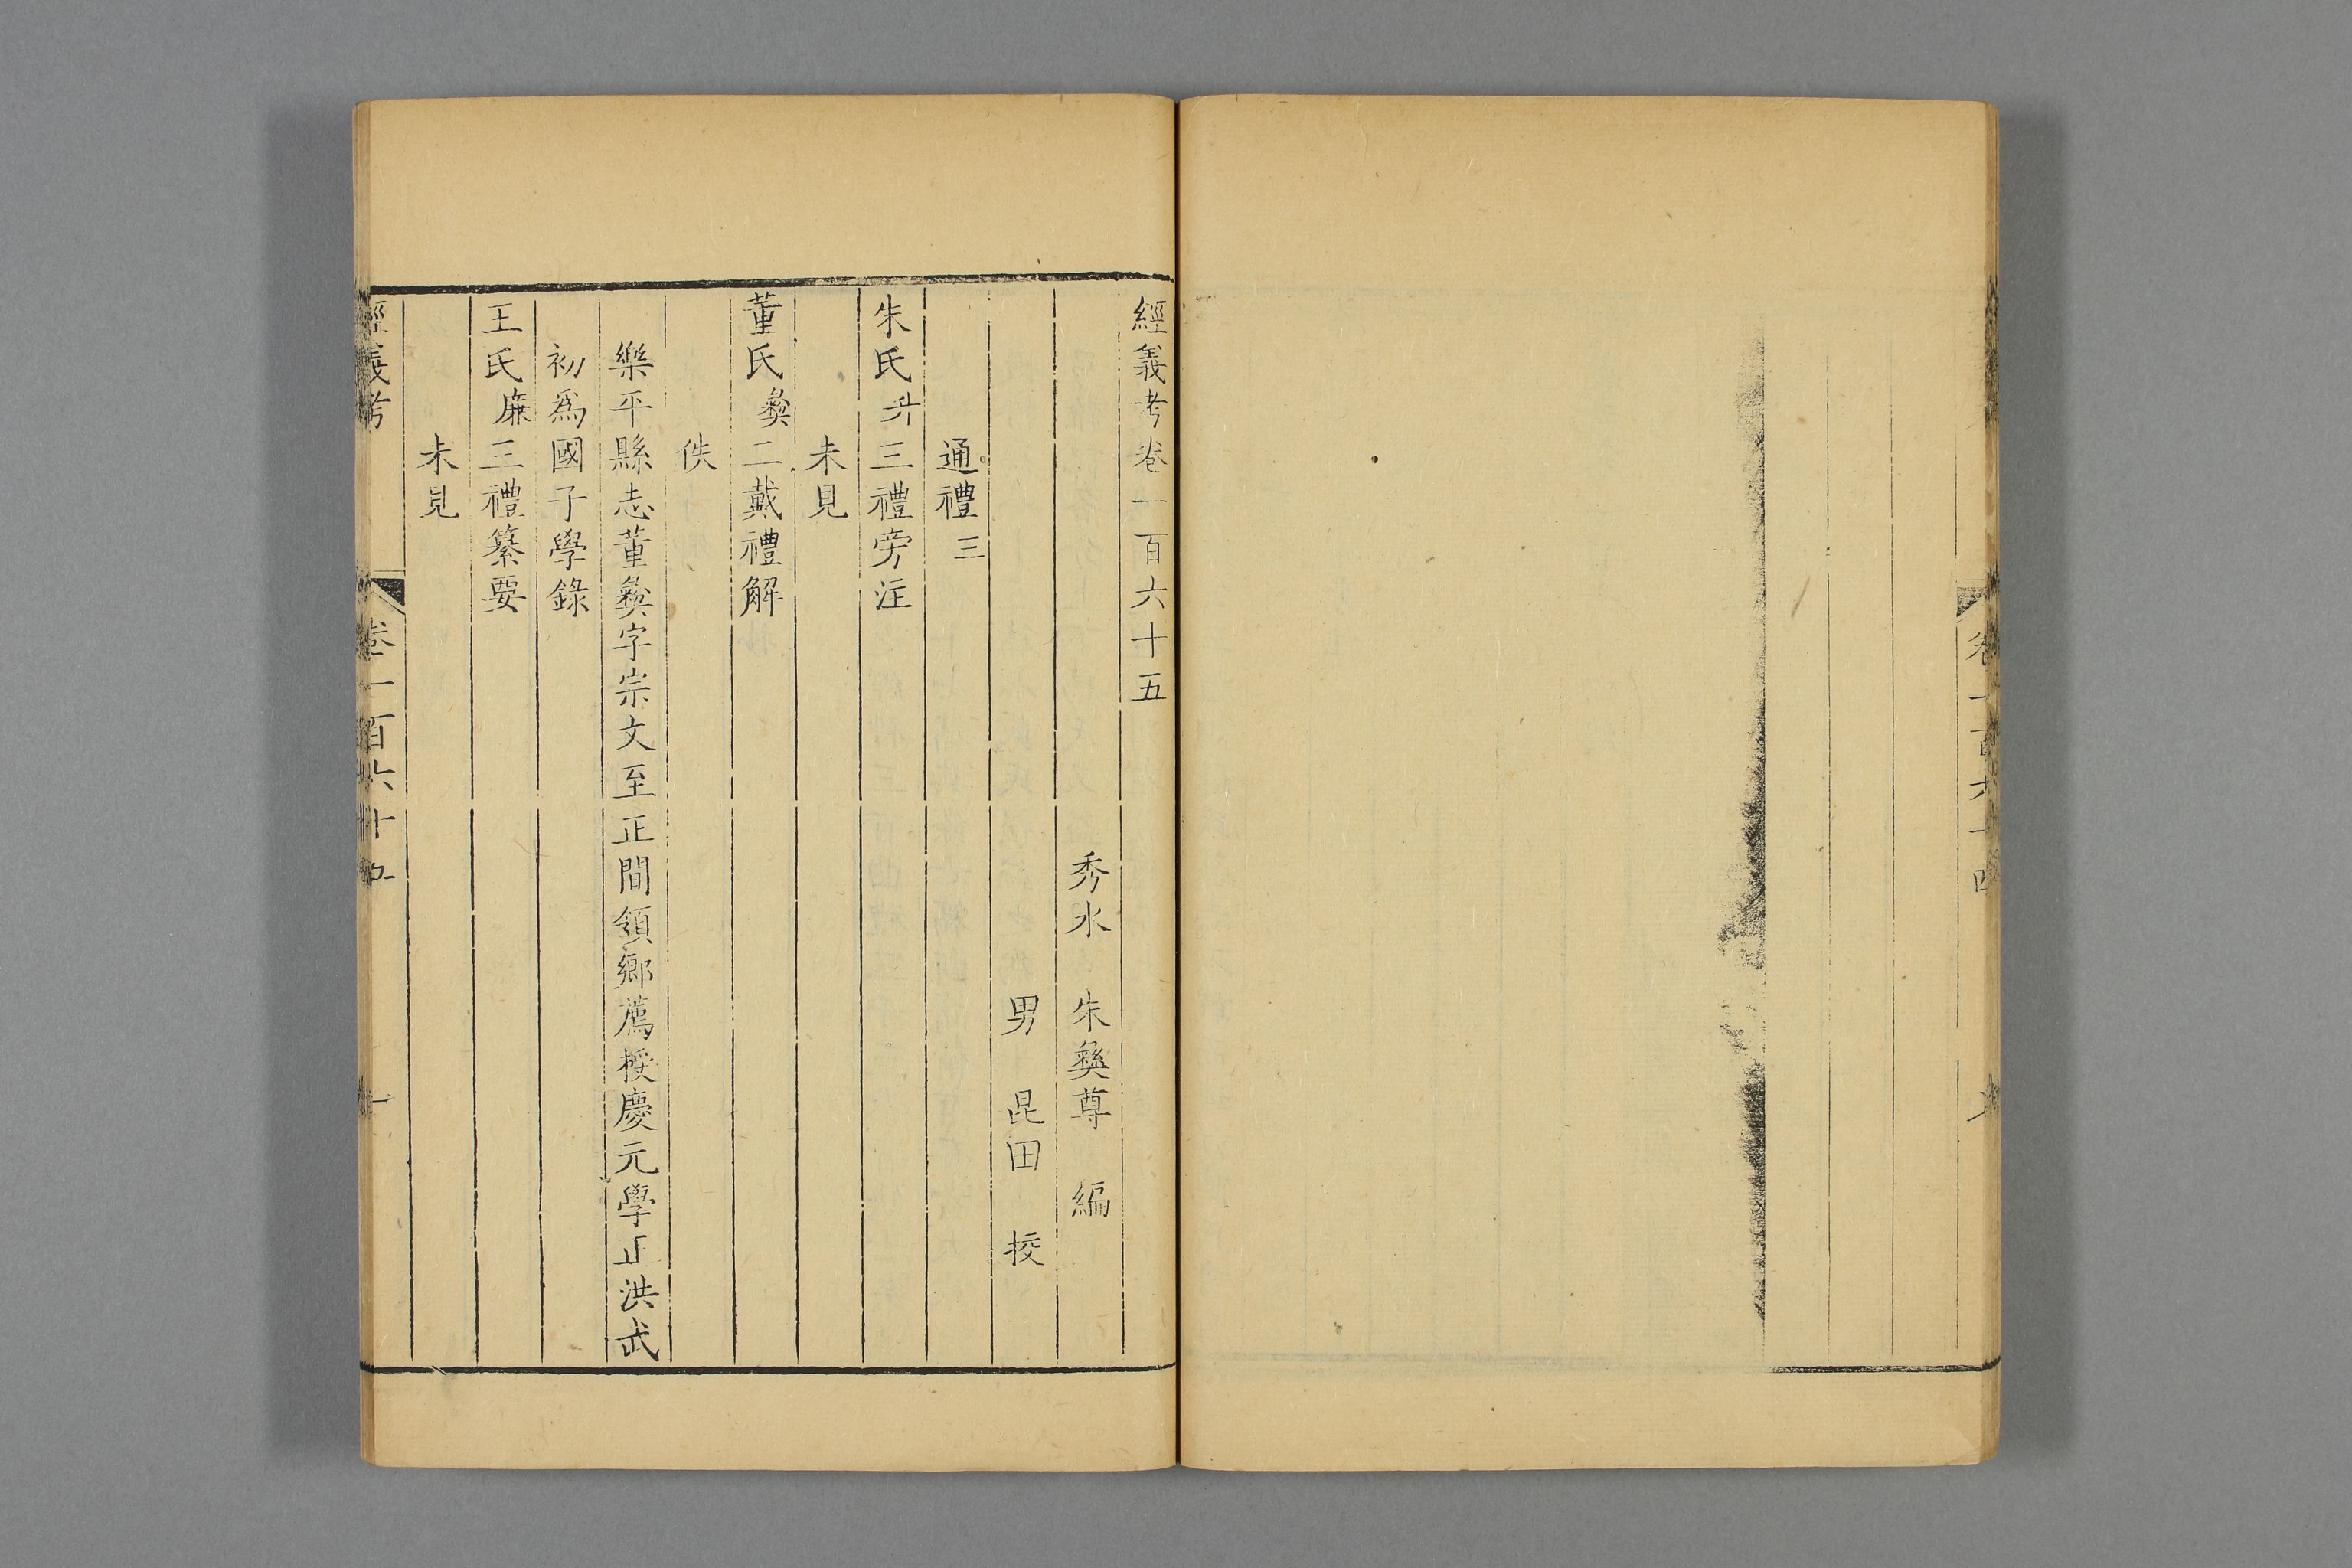 卷一百六十四
經義考卷一百六十五
秀水 朱彝尊 編
男 昆田 挍
通禮三
朱氏升三禮旁注
未見
董氏彝二戴禮解
佚
樂平縣志董彝字宗文至正間領鄉薦授慶元學正洪武
初爲國子學錄
王氏廉三禮纂要
未見
經義考 卷一百六十五 一